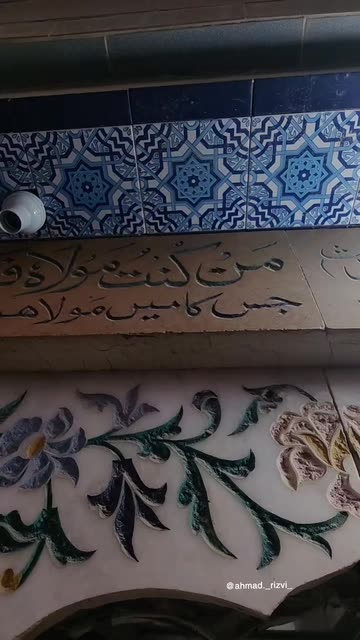 مَنْ كُنْتُ مَوْلَاهُ
جس کا میں مولا
@ahmad._rizvi_